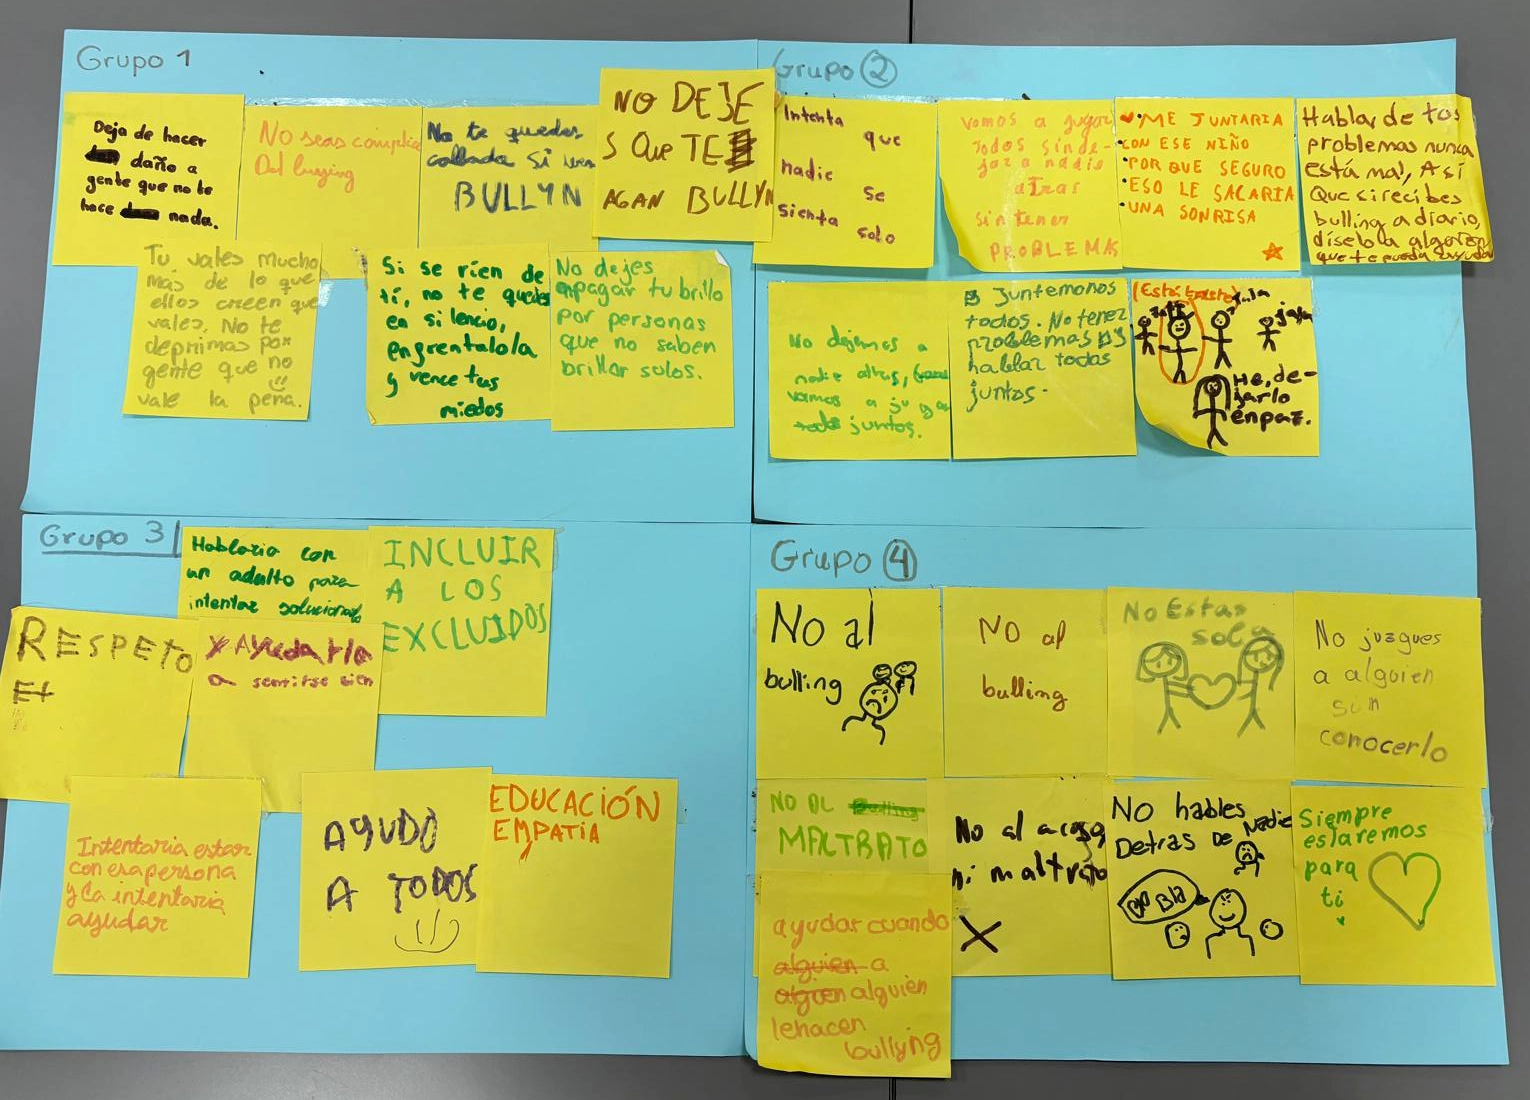 Grupo 1
Deja de hacer
daño a
gente que no te
hace nada.
No seas complice
Del buying
No te quedes
callada si
BULLYN
NO DEJE
S QUE TE
AGAN BULLYN
Tu vales mucho
más de lo que
ellos creen que
vales. No te
deprimas por
gente que no
vale la pena.
Si se ríen de
tí, no te quedes
en silencio,
engrentalo/a
y vence tus
miedos
No dejes
apagar tu brillo
por personas
que no saben
brillar solos.
Grupo 2
Intenta que
nadie se
sienta solo
Vamos a jugar
todos sin de-
jar a nadie
atras
sin tener
PROBLEMAS
ME JUNTARIA
CON ESE NIÑO
POR QUE SEGURO
ESO LE SACARIA
UNA SONRISA
Hablar de tus
problemas nunca
está mal, Así
Que si recibes
bulling a diario,
díselo a alguien
que te pueda ayudar
No dejemos a
nadie atras,
vamos a jugar
todos juntos.
Juntemonos
todos. No tenez
problemas
hablar todos
juntos.
(Está triste)
jaja
jaja
He, de-
jarlo
en paz.
Grupo 3
Hablaria con
un adulto para
intentar solucionarlo
INCLUIR
A LOS
EXCLUIDOS
RESPETO
Y AYUDARLE
a sentirse bien
Intentaria estar
con esa persona
y la intentaria
ayudar
AYUDO
A TODOS
EDUCACIÓN
EMPATÍA
Grupo 4
No al
bulling
NO al
bulling
No Estas
sola
No juzgues
a alguien
sin
conocerlo
NO AL Bulling
MALTRATO
No al acoso
ni maltrato
No hables
Detras De Nadie
Bla Bla
Siempre
estaremos
para
ti
ayudar cuando
alguien a
alguen alguien
lehacen
bullying